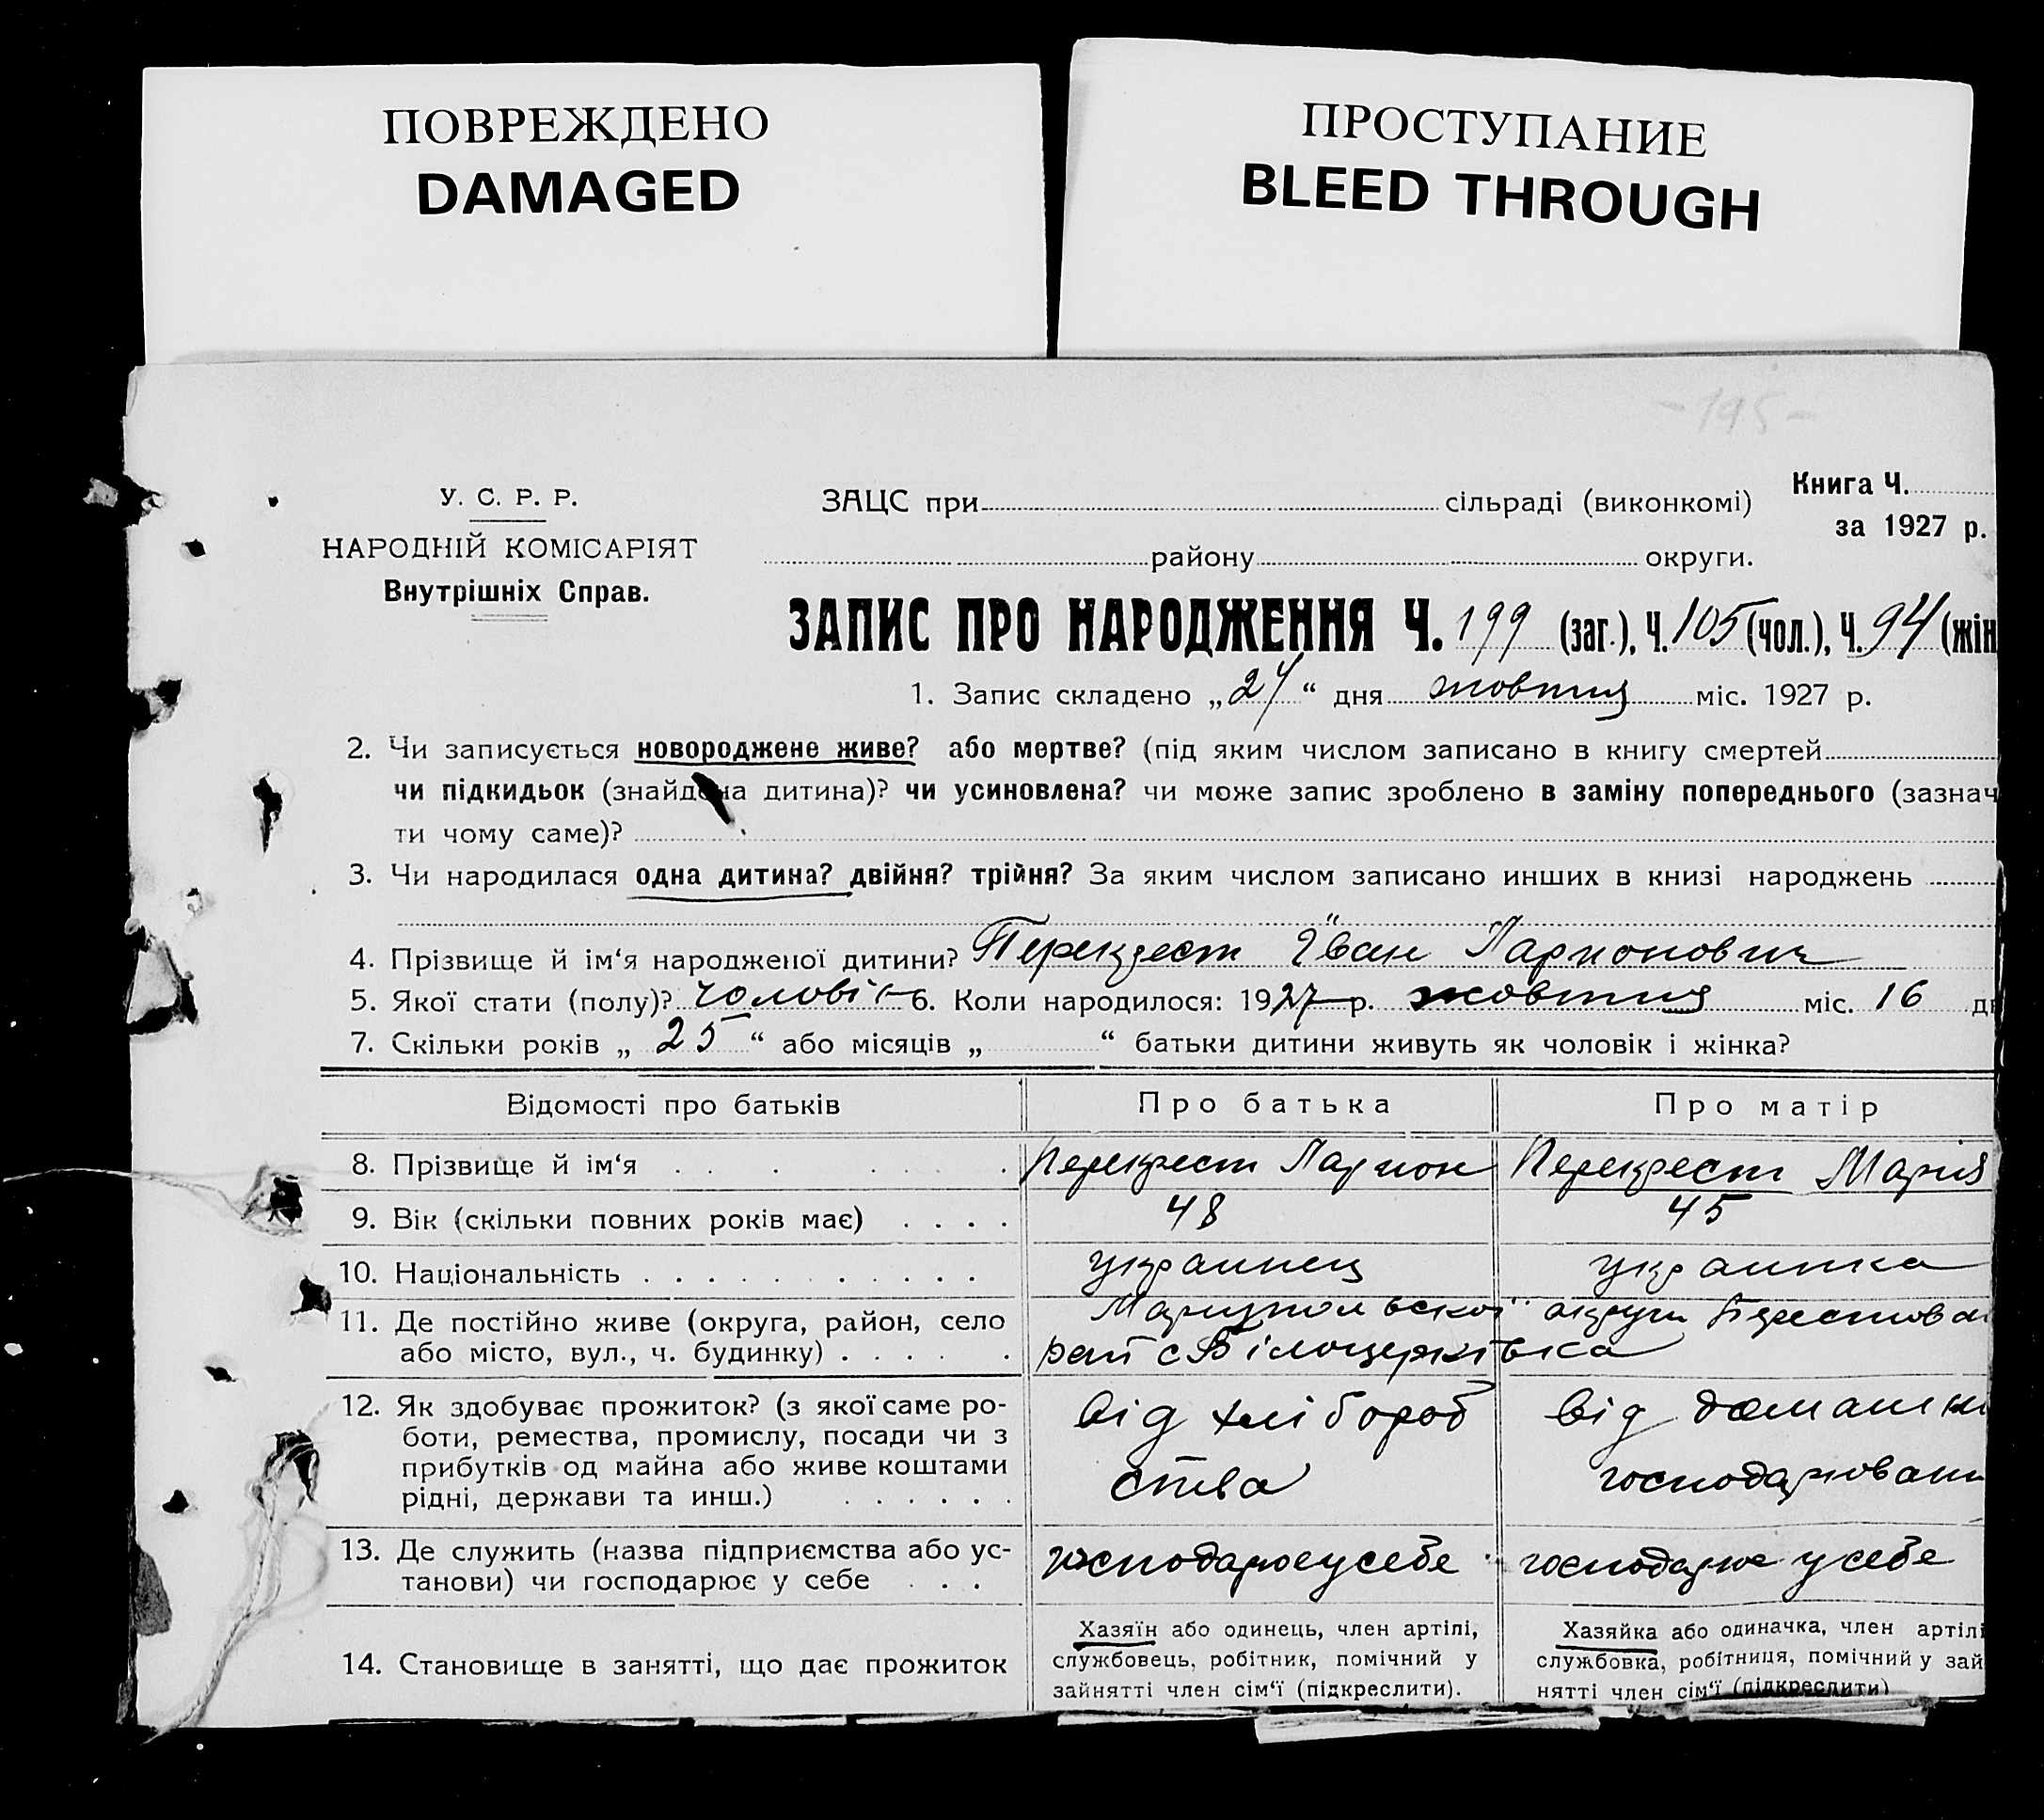 ПОВРЕЖДЕНО
DAMAGED
ПРОСТУПАНИЕ
BLEED THROUGH
- 195 -
У. С. Р. Р.
НАРОДНІЙ КОМІСАРІЯТ
Внутрішніх Справ.
ЗАЦС при сільраді (виконкомі)
Книга Ч.
за 1927 р.
району округи.
ЗАПИС ПРО НАРОДЖЕННЯ Ч. 199 (заг.), Ч. 105 (чол.), Ч. 94 (жін
1. Запис складено „24“ дня жовтня міс. 1927 р.
2. Чи записується новороджене живе? або мертве? (під яким числом записано в книгу смертей
чи підкидьок (знайдена дитина)? чи усиновлена? чи може запис зроблено в заміну попереднього (зазнач
ти чому саме)?
3. Чи народилася одна дитина? двійня? трійня? За яким числом записано инших в книзі народжень
4. Прізвище й ім‘я народженої дитини? Перекрест Іван Ларионович
5. Якої стати (полу)? чоловік 6. Коли народилося: 1927 р. жовтня міс. 16 дн
7. Скільки років „ 25 “ або місяців „ “ батьки дитини живуть як чоловік і жінка?
Відомості про батьків Про батька Про матір
8. Прізвище й ім‘я Перекрест Ларион Перекрест Марія
9. Вік (скільки повних років має) 48 45
10. Національність украинец украинка
11. Де постійно живе (округа, район, село Мариупольської округи
або місто, вул., ч. будинку) рай с Білоцерківка
12. Як здобуває прожиток? (з якої саме ро-
боти, ремества, промислу, посади чи з
прибутків од майна або живе коштами
рідні, держави та инш.)
від хлібороб
ства
від домашн
господарювани
13. Де служить (назва підприємства або ус-
танови) чи господарює у себе
господарює у себе
господарює у себе
14. Становище в занятті, що дає прожиток
Хазяїн або одинець, член артілі,
службовець, робітник, помічний у
зайнятті член сім‘ї (підкреслити).
Хазяйка або одиначка, член артілі
службовка, робітниця, помічний у зай
нятті член сім‘ї (підкреслити)